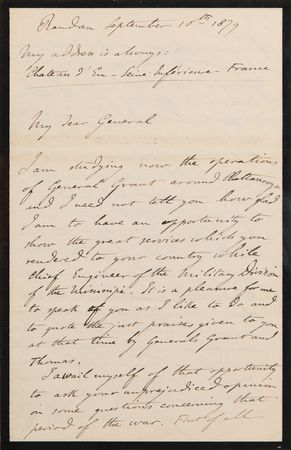 Randan September 10th 1879
My address is always:
Chateau d'Eu - Seine Inférieure - France
My dear General
I am studying now the operations
of General Grant around Chattanooga
and I need not tell you how glad
I am to have an opportunity to
show the great services which you
rendered to your country while
Chief Engineer of the Military Division
of the Mississipi. It is a pleasure for me
to speak of you as I like to do and
to quote the just praises given to you
at that time by Generals Grant and
Thomas.
I avail myself of that opportunity
to ask your unprejudiced opinion
on some questions concerning that
period of the war. First of all